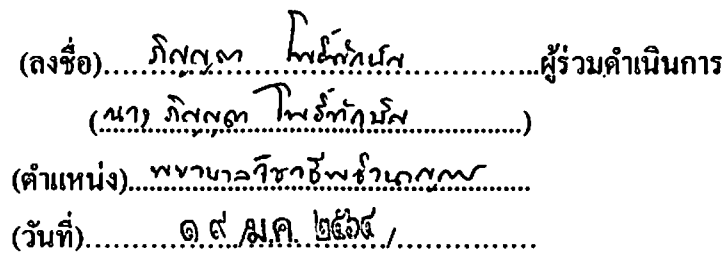 (ลงชื่อ) ภิญญดา โพธิ์ทักษิณ ผู้ร่วมดำเนินการ
(นาง ภิญญดา โพธิ์ทักษิณ)
(ตำแหน่ง) พยาบาลวิชาชีพชำนาญการ
(วันที่) ๑๙ ม.ค. ๒๕๖๔ /